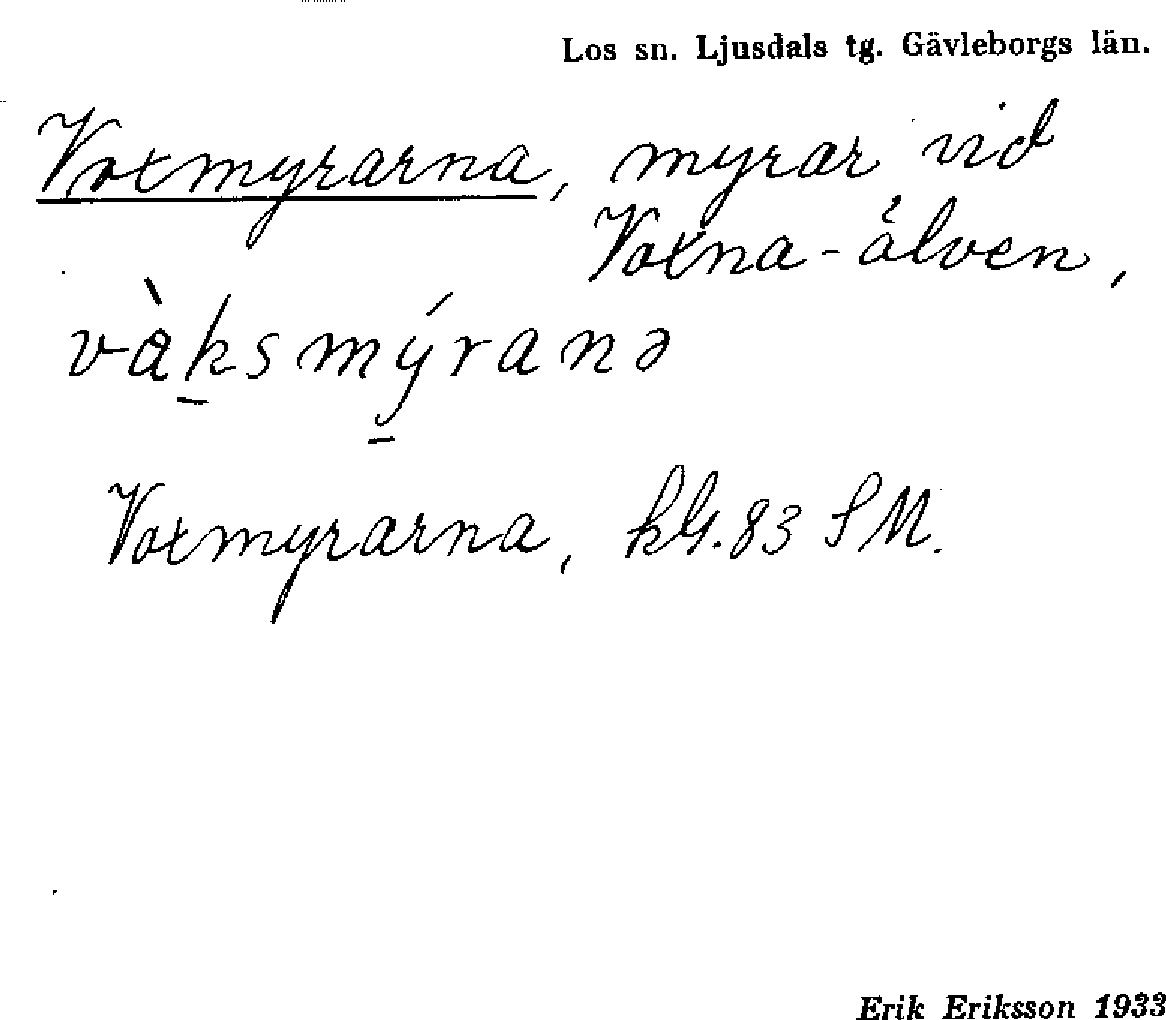 Los sn. Ljusdals tg. Gävleborgs län.
Voxmyrarna, myrar vid
Voxna-älven,
vàksmýranə
Voxmyrarna, kbl. 83 SM.
Erik Eriksson 1933